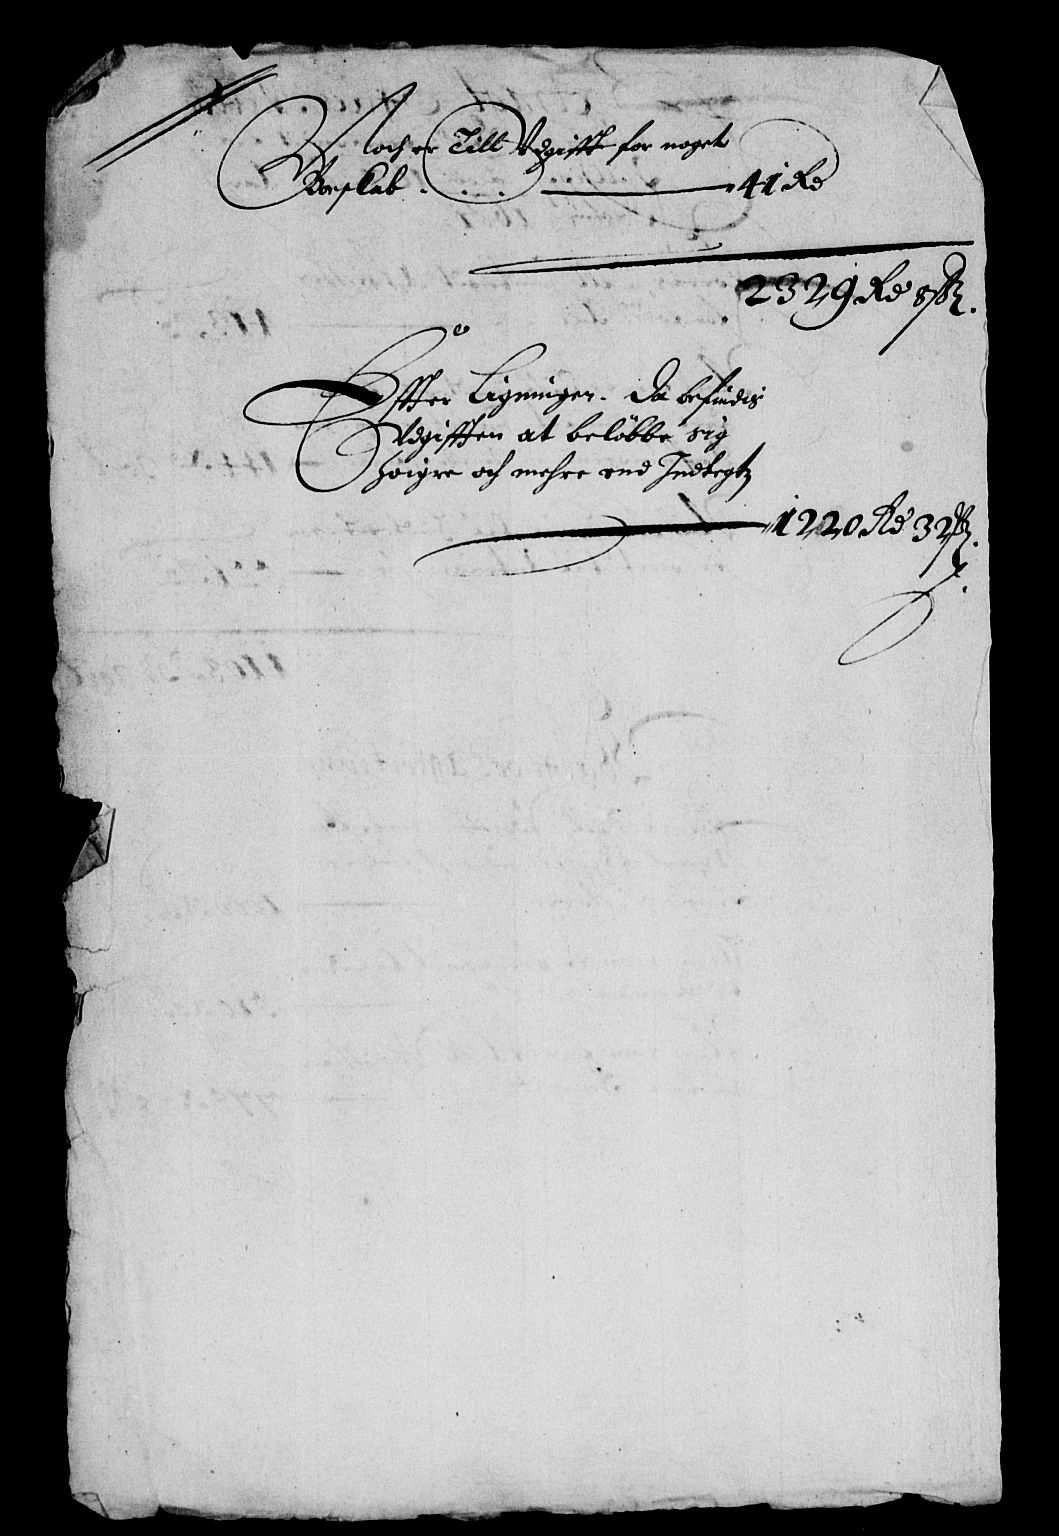 Noch er Till Vdgifft for noget
Boeskab . . . 41 Rd
2329 Rd 8 ß.
Effter Ligninger. Da befindis
Vdgifften at beløbbe sig
høigre och mehre end Indtegt
1220 Rd 32 ß.